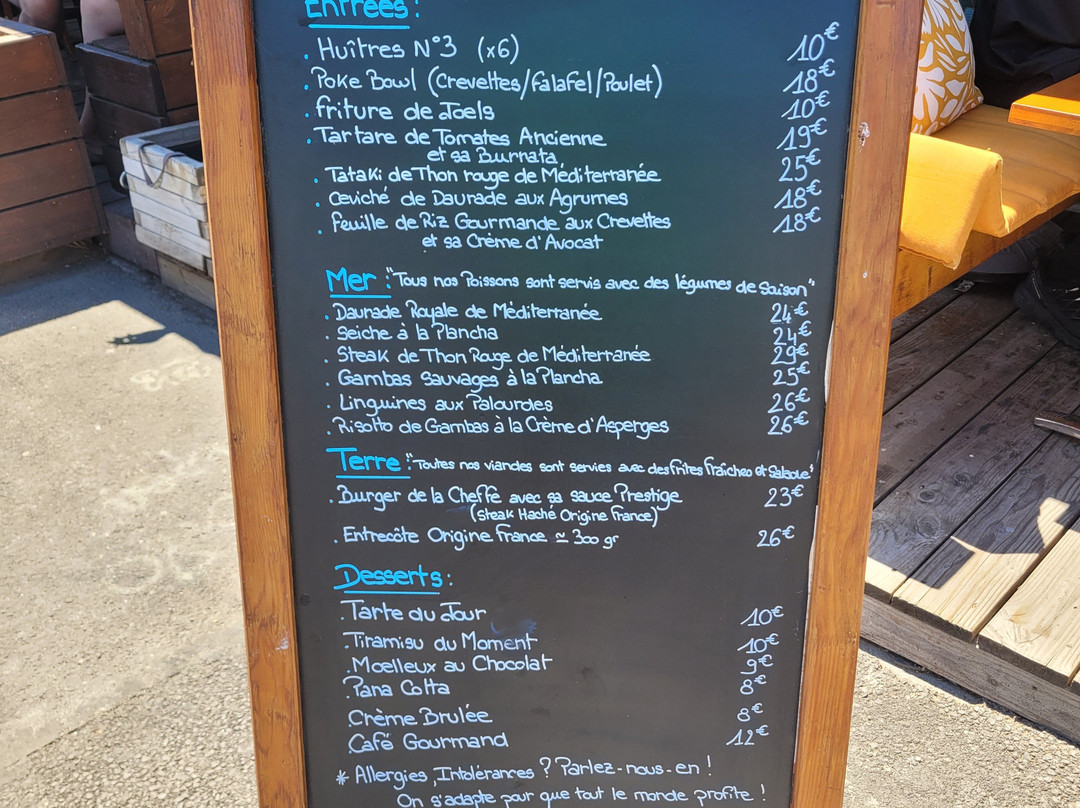 Entrées :
. Huîtres N°3 (x6) 10€
. Poke Bowl (Crevettes/Falafel/Poulet) 18€
. Friture de Joels 10€
. Tartare de Tomates Ancienne 19€
et sa Burrata
. Tataki de Thon rouge de Méditerranée 25€
. Ceviché de Daurade aux Agrumes 18€
. Feuille de Riz Gourmande aux Crevettes 18€
et sa Crème d'Avocat
Mer : "Tous nos Poissons sont servis avec des légumes de Saison"
. Daurade Royale de Méditerranée 24€
. Seiche à la Plancha 24€
. Steak de Thon Rouge de Méditerranée 29€
. Gambas Sauvages à la Plancha 25€
. Linguines aux Palourdes 26€
. Risotto de Gambas à la Crème d'Asperges 26€
Terre : "Toutes nos viandes sont servies avec des frites fraîches et Salade"
. Burger de la Cheffe avec sa sauce Prestige 23€
(Steak Haché Origine France)
. Entrecôte Origine France ≃ 300 gr 26€
Desserts :
. Tarte du Jour 10€
. Tiramisu du Moment 10€
. Moelleux au Chocolat 9€
. Pana Cotta 8€
Crème Brulée 8€
Café Gourmand 12€
* Allergies, Intolérances ? Parlez-nous-en !
On s'adapte pour que tout le monde profite !